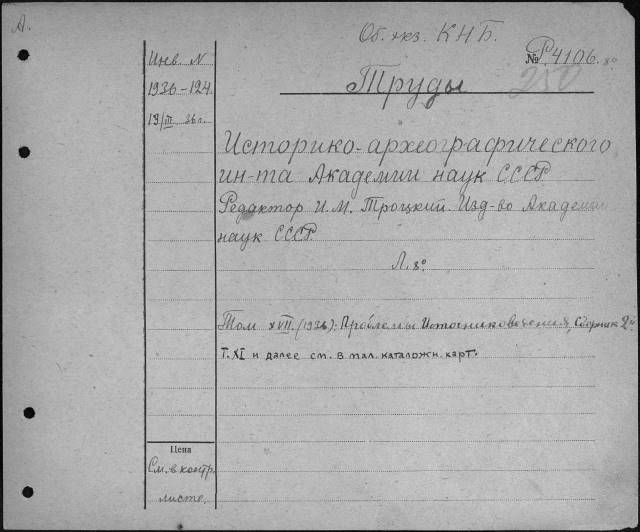 А.
Об. экз. КНБ.
№ Р.4106. 8º
250
Труды
Инв. N
1936-124.
19/III 36 г.
Историко-археографического
ин-та Академии наук СССР
Редактор И.М. Троцкий. Изд-во Академии
наук СССР.
Л. 8º
Том XVII. (1936): Проблемы Источниковедения, Сборник 2й
Т. XI и далее см. в мал. каталожн. карт.
Цена
См. в контр.
листе.